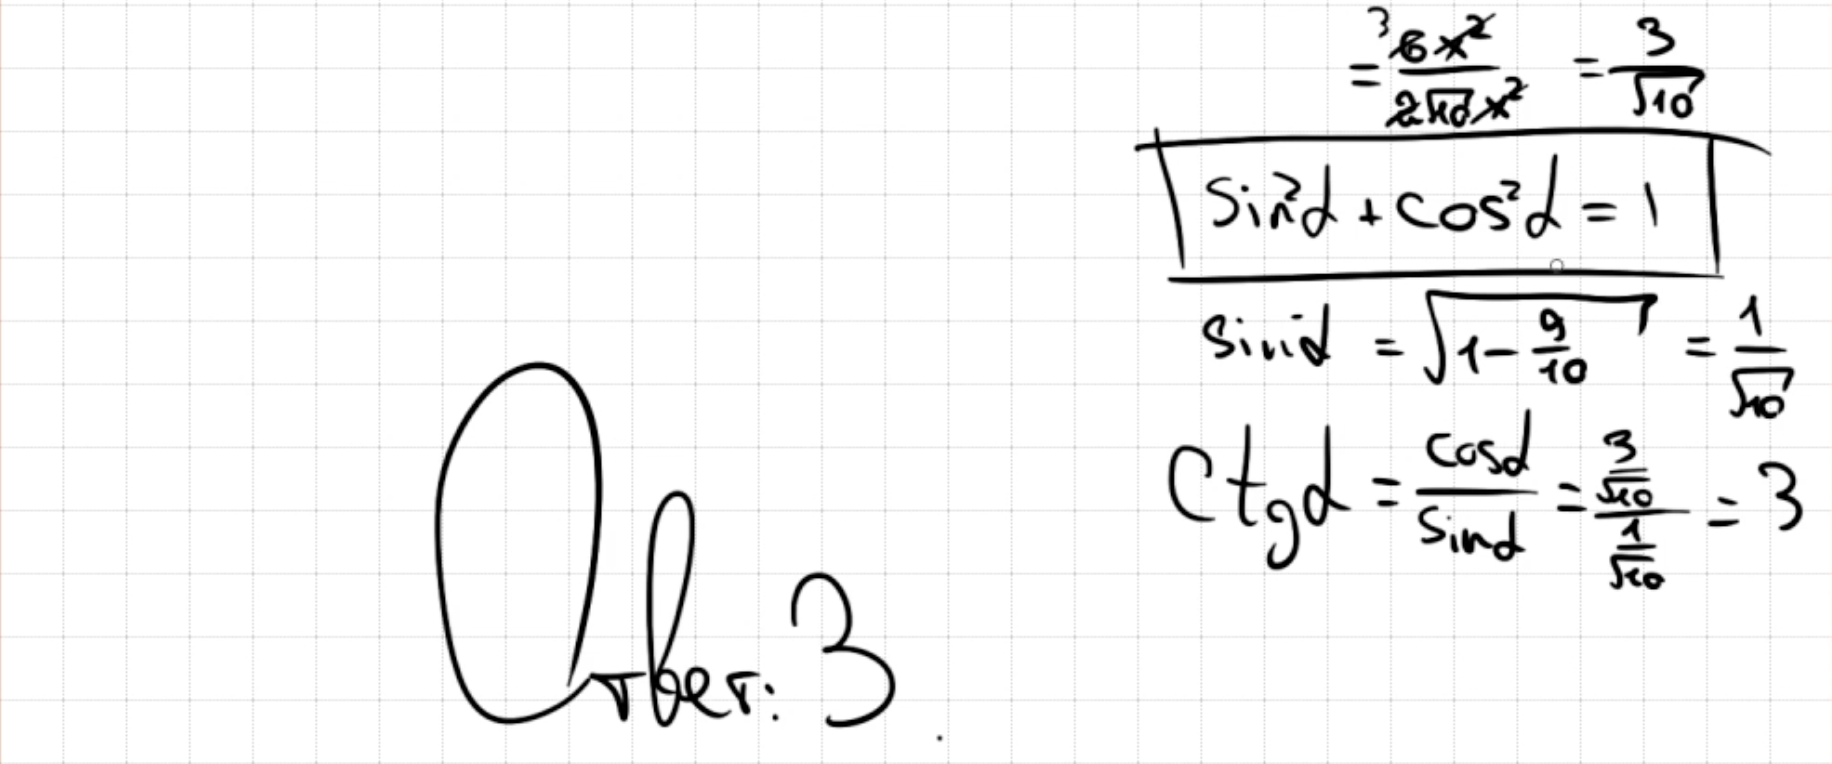 = 3 6x² / 2√10x² = 3/√10
sin²α + cos²α = 1
sinα = √(1 - 9/10) = 1/√10
ctgα = cosα/sinα = (3/√10)/(1/√10) = 3
Ответ: 3.